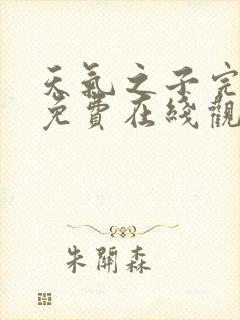 天氣之子完
免費在綫觀
朱開森